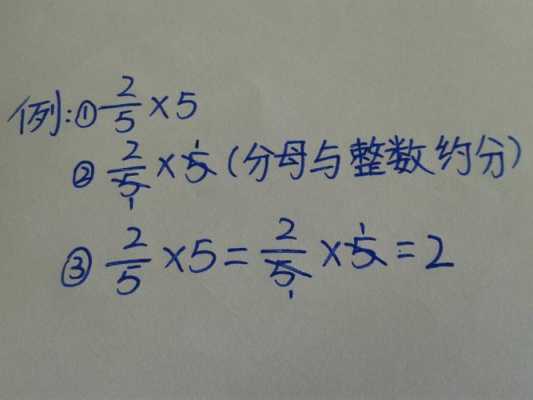 例:① 2/5 ×5
② 2/5 1 ×5 1 (分母与整数约分)
③ 2/5 ×5= 2/5 1 ×5 1 =2